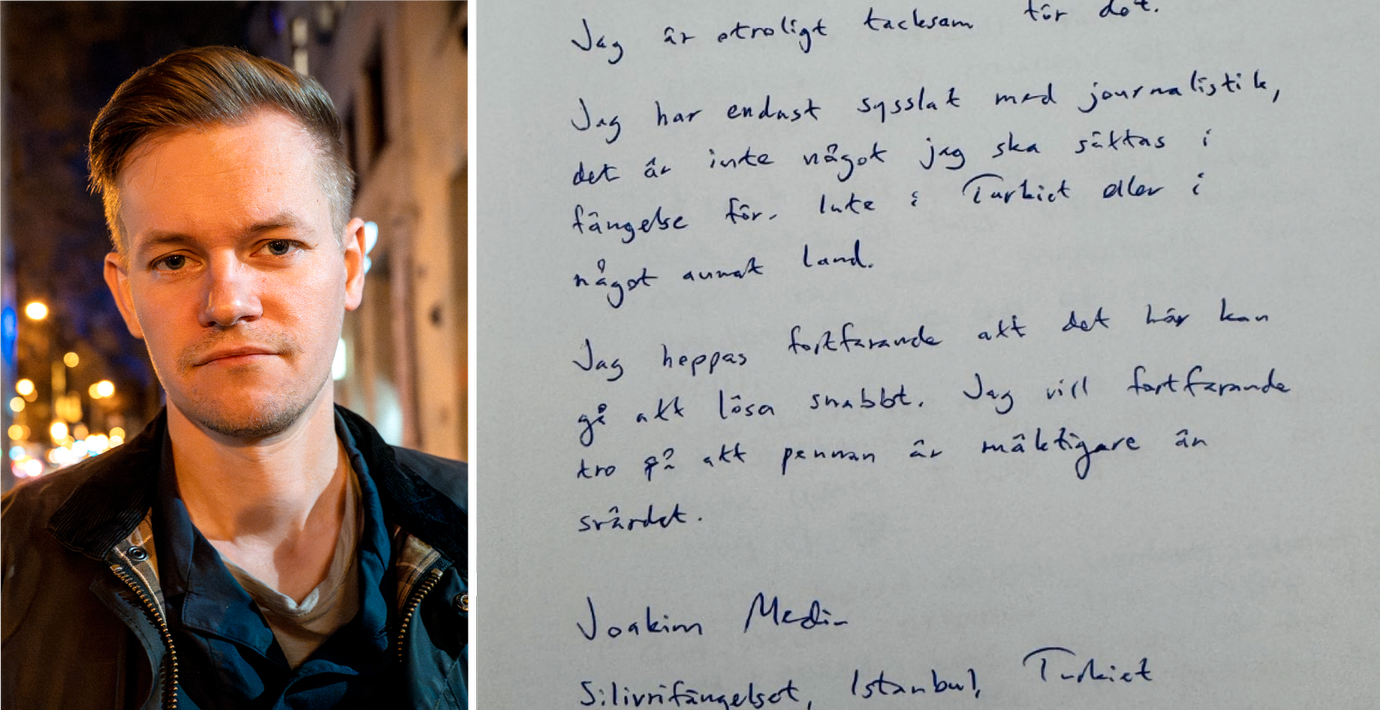 Jag är otroligt tacksam för det.
Jag har endast sysslat med journalistik,
det är inte något jag ska sättas i
fängelse för. Inte i Turkiet eller i
något annat land.
Jag hoppas fortfarande att det här kan
gå att lösa snabbt. Jag vill fortfarande
tro på att pennan är mäktigare än
svärdet.
Joakim Medin
Silivrifängelset, Istanbul, Turkiet